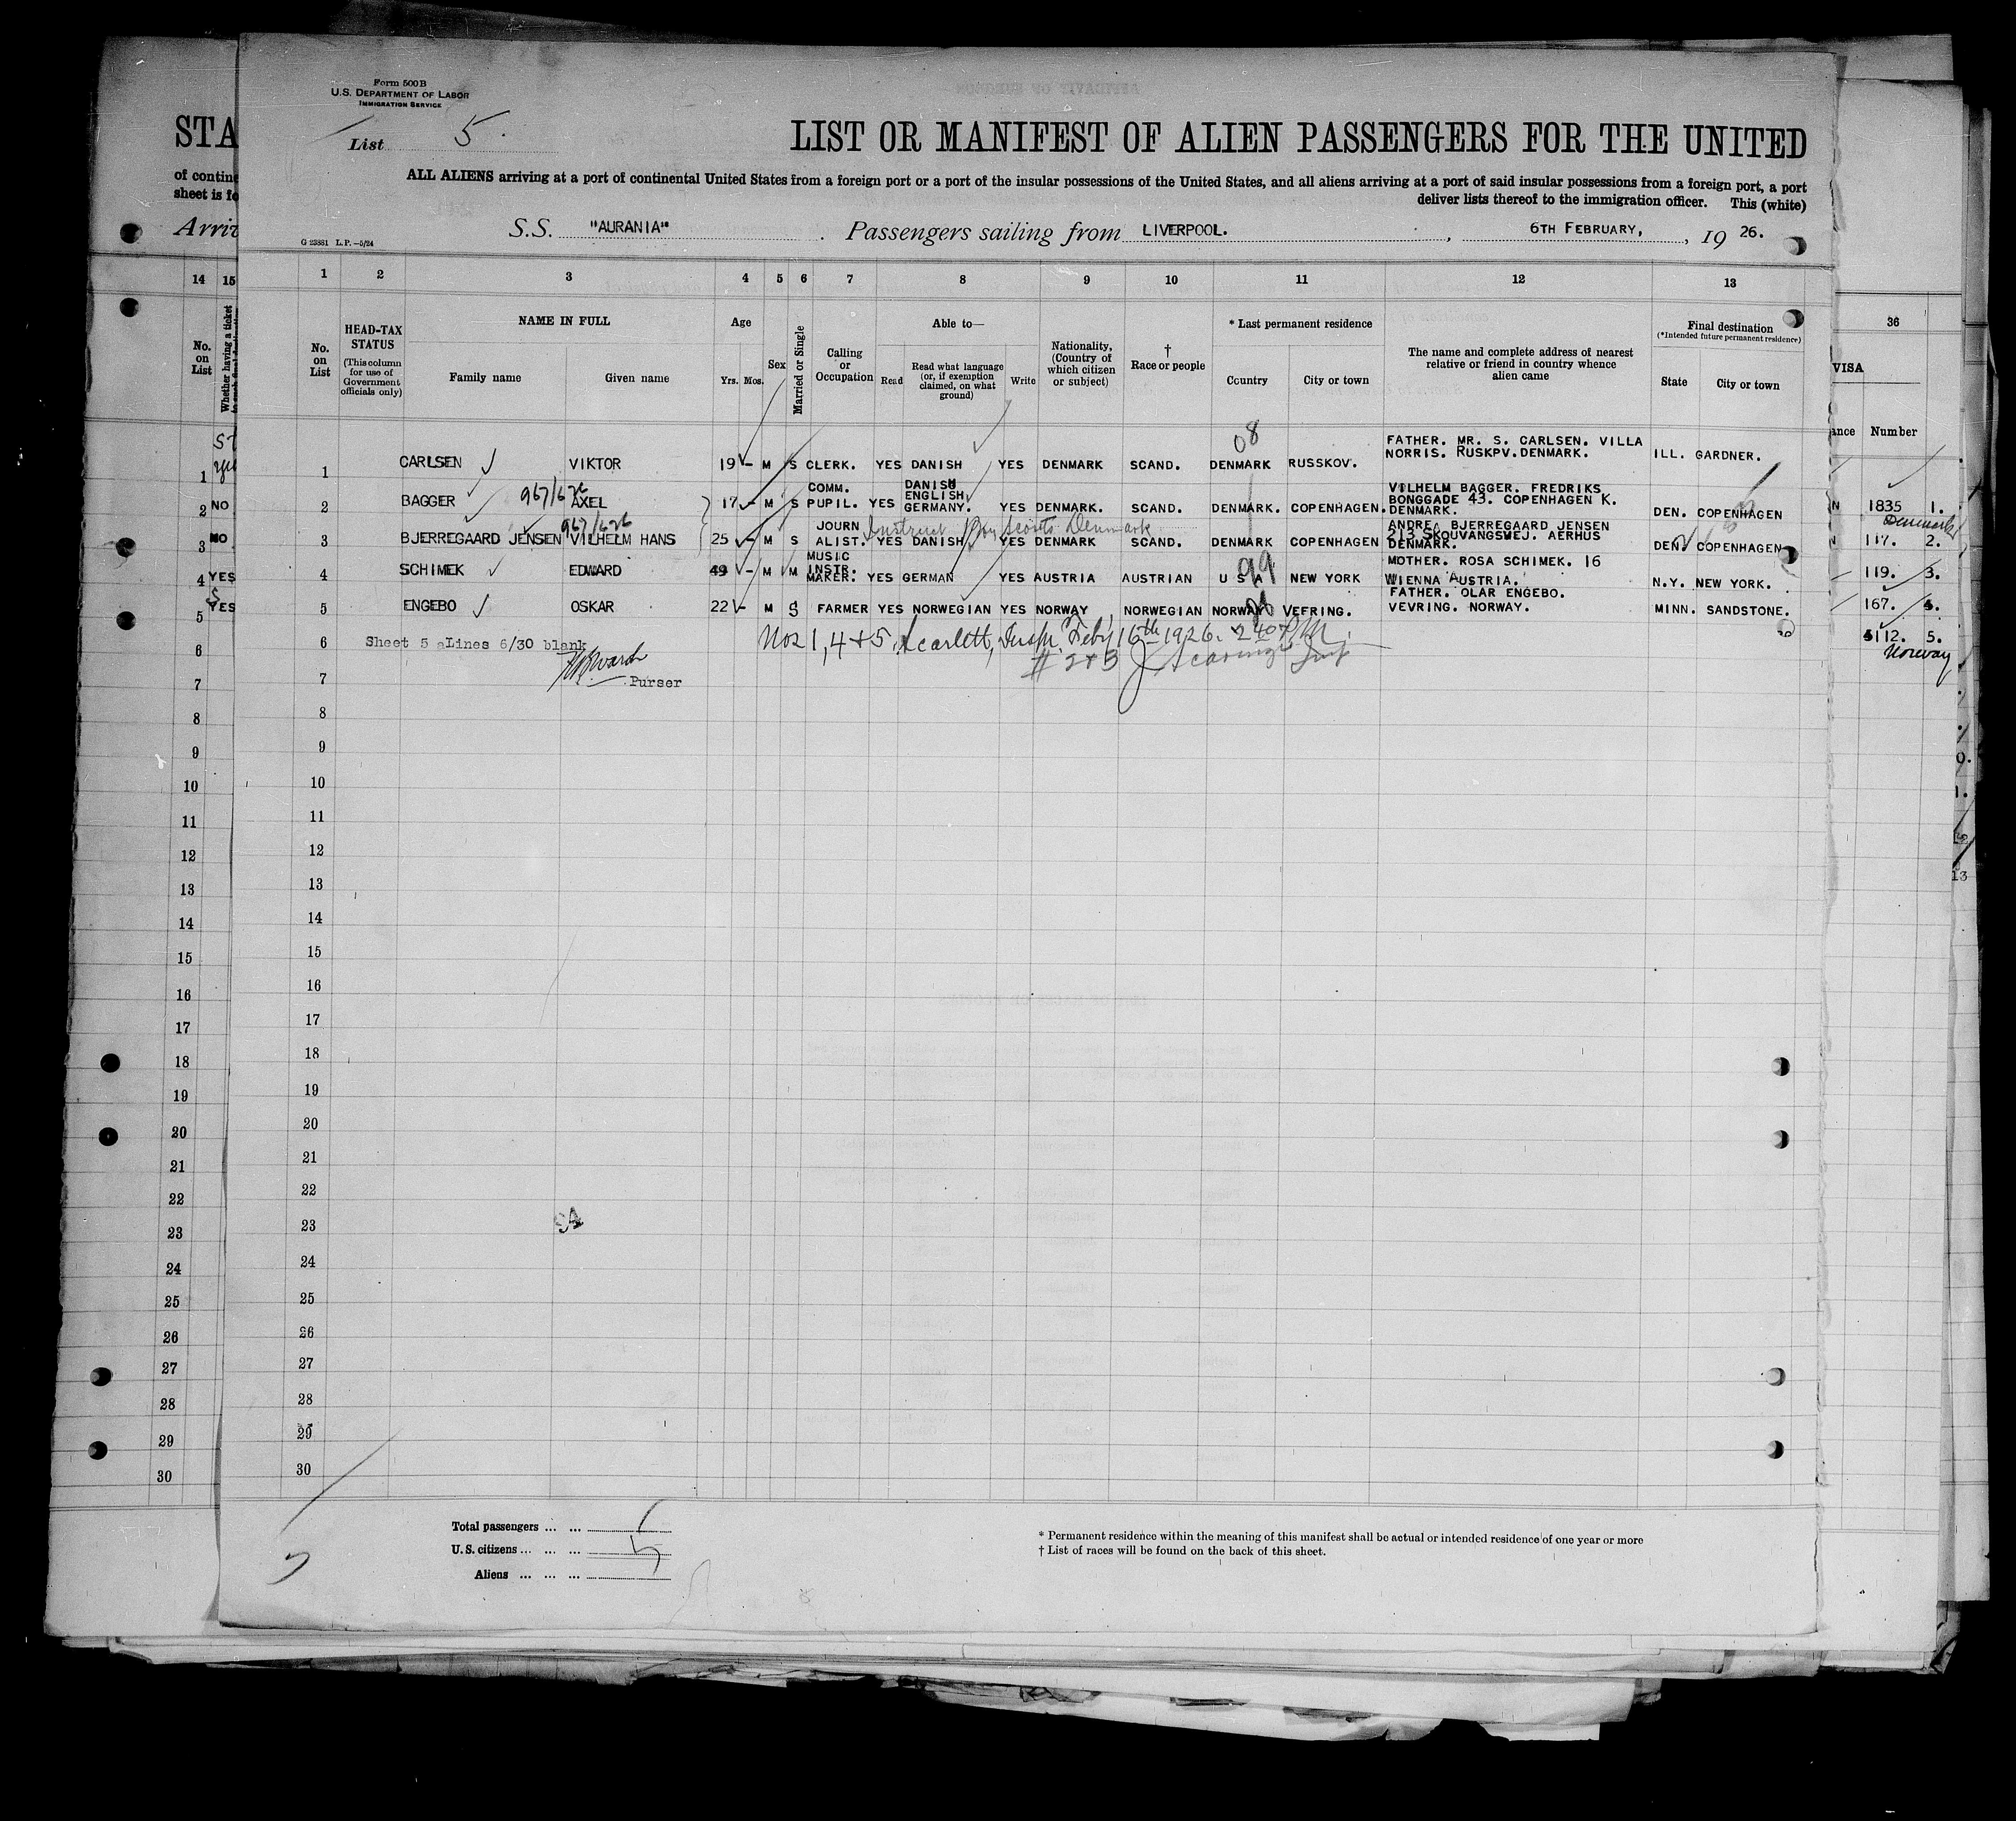 Form 500B
U.S. DEPARTMENT OF LABOR
IMMIGRATION SERVICE
List 5.
LIST OR MANIFEST OF ALIEN PASSENGERS FOR THE UNITED
ALL ALIENS arriving at a port of continental United States from a foreign port or a port of the insular possessions of the United States, and all aliens arriving at a port of said insular possessions from a foreign port, a port
deliver lists thereof to the immigration officer. This (white)
S.S. "AURANIA" . Passengers sailing from LIVERPOOL. , 6TH FEBRUARY, , 19 26.
G 23881 L.P.—5/24
STA
of contine
sheet is fo
Arriv
14 15
No. on List
Whether having a ticket
1 2 3 4 5 6 7 8 9 10 11 12 13
No. on List
HEAD-TAX STATUS
(This column for use of Government officials only)
NAME IN FULL
Family name Given name
Age
Yrs. Mos.
Sex
Married or Single
Calling or Occupation
Able to—
Read
Read what language (or, if exemption claimed, on what ground)
Write
Nationality, (Country of which citizen or subject)
† Race or people
* Last permanent residence
Country City or town
The name and complete address of nearest relative or friend in country whence alien came
Final destination
(*Intended future permanent residence)
State City or town
36
VISA
ance Number
08
1 CARLSEN VIKTOR 19 - M S CLERK. YES DANISH YES DENMARK SCAND. DENMARK RUSSKOV. FATHER. MR. S. CARLSEN. VILLA NORRIS. RUSKPV. DENMARK. ILL. GARDNER.
967/626
2 BAGGER AXEL 17 - M S COMM. PUPIL. YES DANISH ENGLISH GERMANY. YES DENMARK. SCAND. DENMARK. COPENHAGEN. VILHELM BAGGER. FREDRIKS BONGGADE 43. COPENHAGEN K. DENMARK. DEN. COPENHAGEN
967/626
Instruct Boy Scouts Denmark
3 BJERREGAARD JENSEN VILHELM HANS 25 - M S JOURN ALIST. YES DANISH YES DENMARK SCAND. DENMARK COPENHAGEN ANDREA BJERREGAARD JENSEN 213 SKOUVANGSWEJ. AERHUS DENMARK. DEN. COPENHAGEN
99
4 SCHIMEK EDWARD 49 - M M MUSIC INSTR. MAKER. YES GERMAN YES AUSTRIA AUSTRIAN U S A NEW YORK MOTHER. ROSA SCHIMEK. 16 WIENNA AUSTRIA. N.Y. NEW YORK.
5 ENGEBO OSKAR 22 - M S FARMER YES NORWEGIAN YES NORWAY NORWEGIAN NORWAY VEFRING. FATHER. OLAR ENGEBO. VEVRING. NORWAY. MINN. SANDSTONE.
Nos 1, 4 + 5 Scarlett, Insp. Feby 16th 1926. 2 40 P.M.
# 2 + 3
Sheet 5 Lines 6/30 blank
Purser
1835 1.
Denmark
117. 2.
119. 3.
167. 4.
112. 5.
Norway
1 yes
2 NO
3 NO
4 YES
5 YES
6
7
8
9
10
11
12
13
14
15
16
17
18
19
20
21
22
23
24
25
26
27
28
29
30
Total passengers ... ...
U.S. citizens ... ... ...
Aliens ... ... ...
5
* Permanent residence within the meaning of this manifest shall be actual or intended residence of one year or more
† List of races will be found on the back of this sheet.